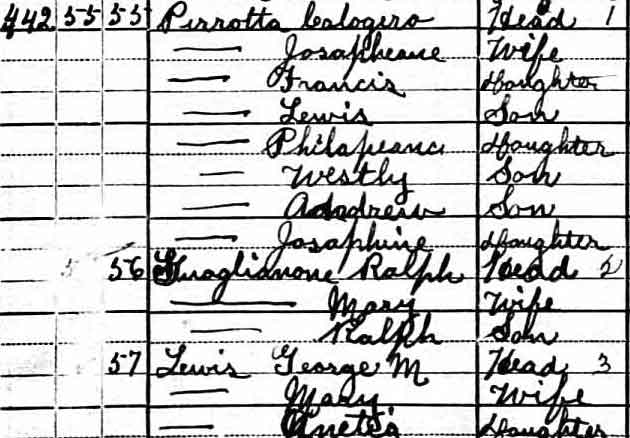 442 55 55 Pirrotta Calogero Head 1
— Josapheane Wife
— Francis Daughter
— Lewis Son
— Philapeanc Daughter
— Westly Son
— Andrew Son
— Josaphine Daughter
56 Guaglianone Ralph Head 2
— Mary Wife
— Ralph Son
57 Lewis George M Head 3
— Mary Wife
— Daughter